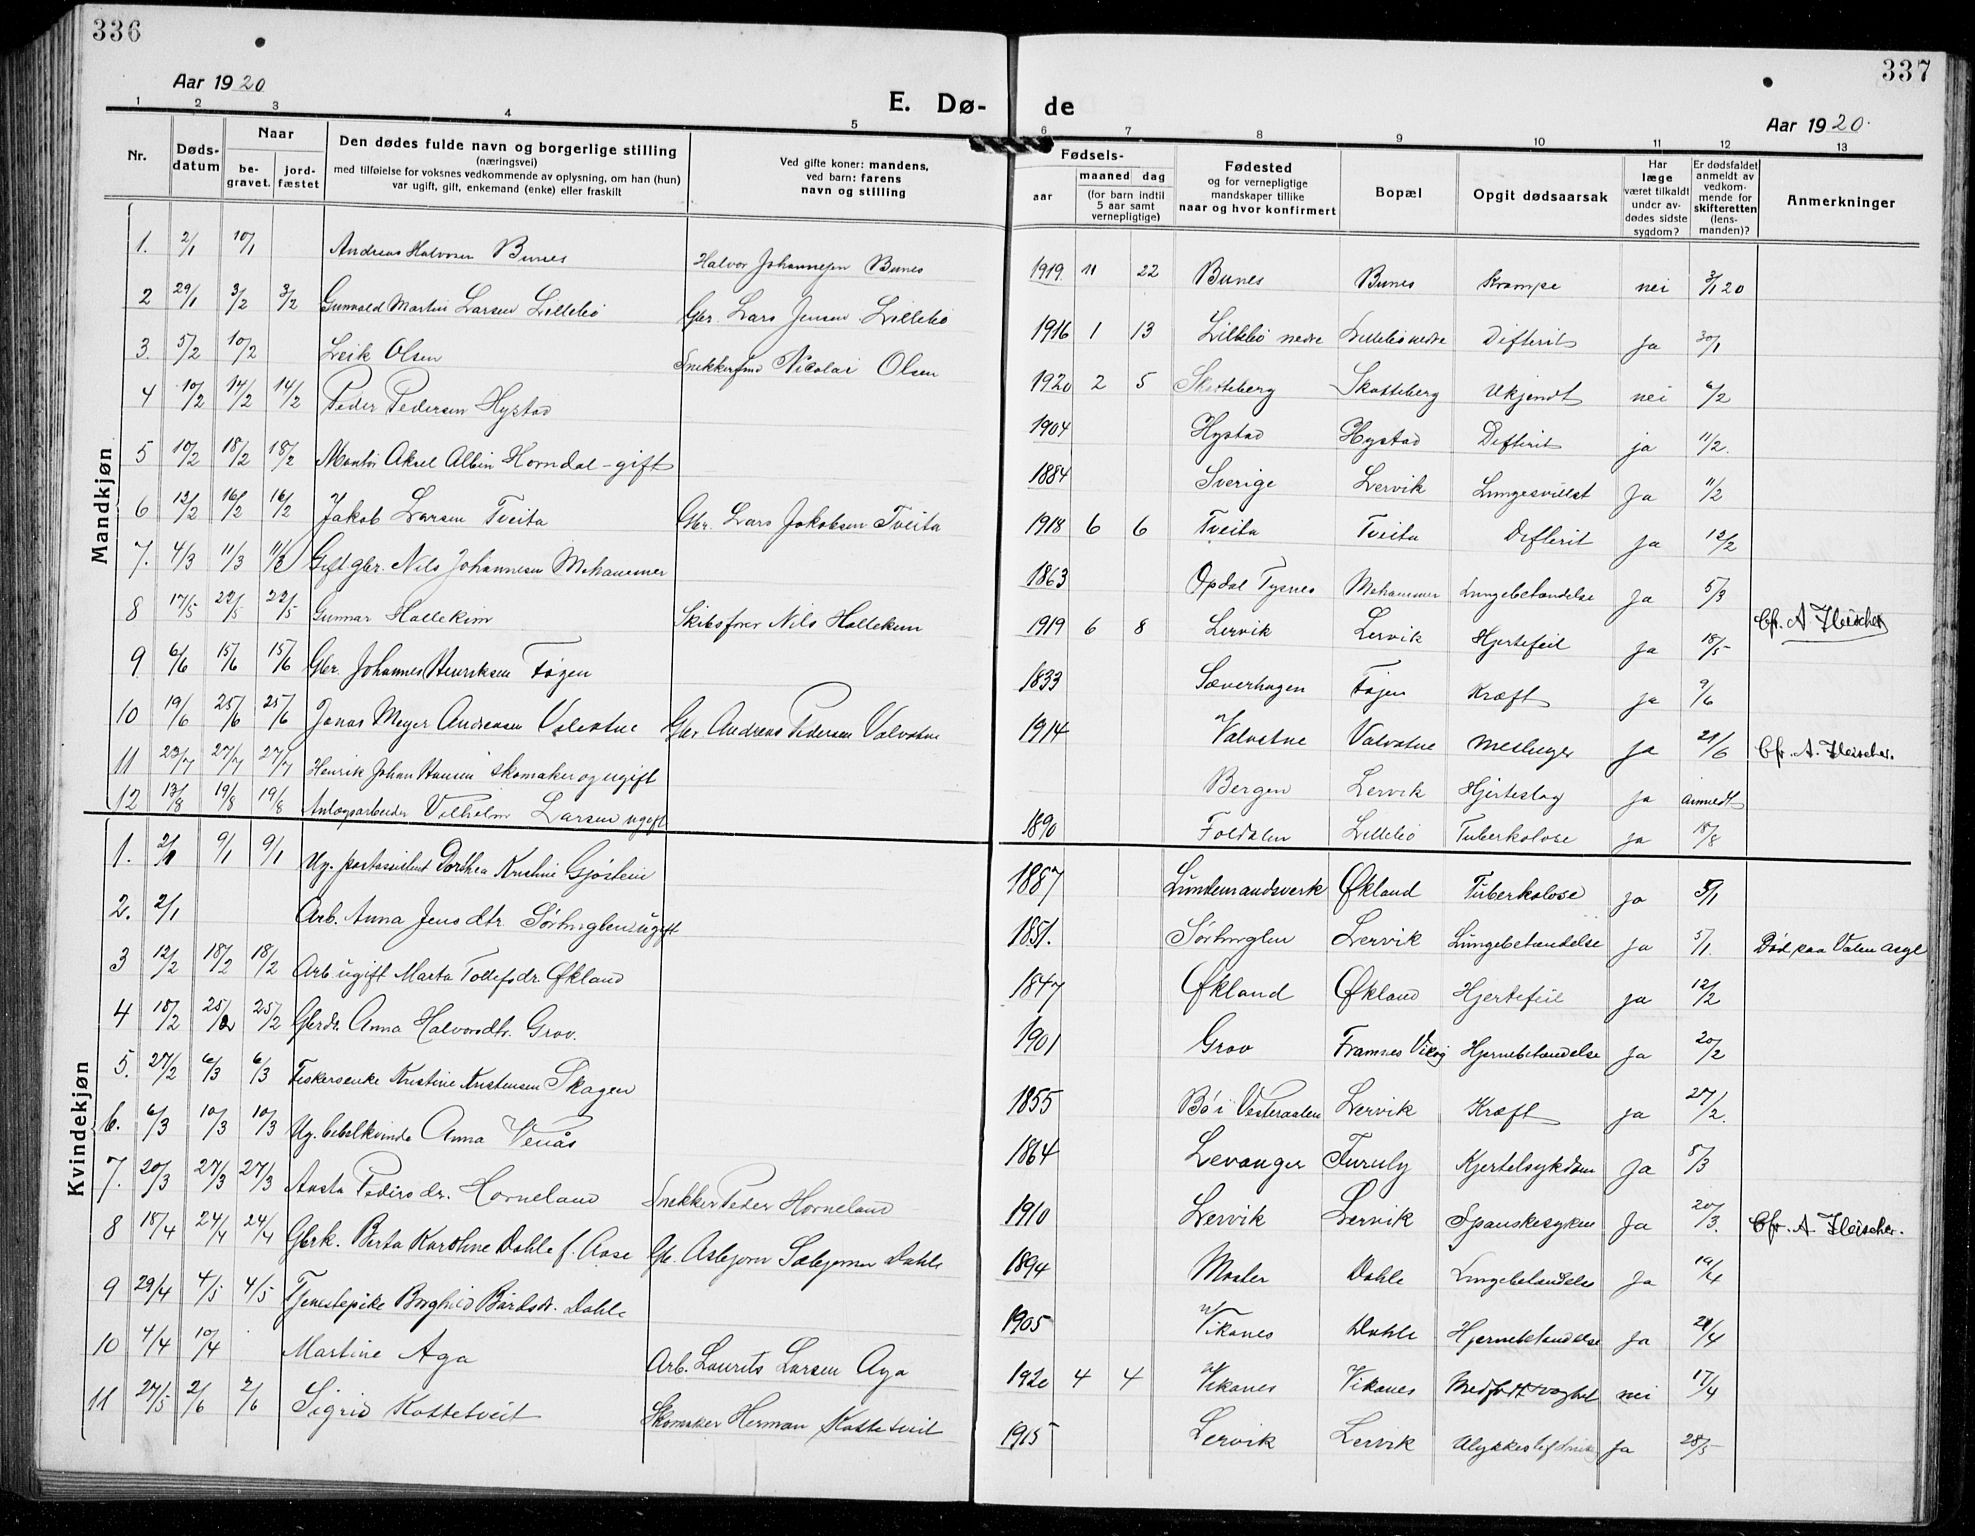 336
Aar 1920
E. Dø-
1 2 3 4 5
Nr.
Døds-
datum
Naar
be-
gravet.
jord-
fæstet
Den dødes fulde navn og borgerlige stilling
(næringsvei)
med tilføielse for voksnes vedkommende av oplysning, om han (hun)
var ugift, gift, enkemand (enke) eller fraskilt
Ved gifte koner: mandens,
ved barn: farens
navn og stilling
Mandkjøn
1. 2/1 10/1 Andreas Halvorsen Bunes Halvor Johannesen Bunes
2 29/1 3/2 3/2 Gunvald Martin Larsen Lillebø Gbr. Lars Jensen Lillebø
3 5/2 10/2 Leik Olsen Snekkersvend Nicolai Olsen
4 10/2 14/2 14/2 Peder Pedersen Hystad
5 10/2 18/2 18/2 Montør Aksel Albin Horndal - gift
6 12/2 16/2 16/2 Jakob Larsen Tveita Gbr. Lars Jakobsen Tveita
7. 4/3 11/3 11/3 Gift gbr. Nils Johannesen Mehammer
8 17/5 22/5 22/5 Gunnar Hallekim Skibsfører Nils Hallekim
9 6/6 15/6 15/6 Gbr. Johannes Henriksen Føyen
10 19/6 25/6 25/6 Jonas Meyer Andreasen Valvatne Gbr. Andreas Pedersen Valvatne
11 23/7 27/7 27/7 Henrik Johan Hansen skomaker og ugift
12 13/8 19/8 19/8 Anlægsarbeider Vilhelm Larsen ugift
Kvindekjøn
1. 2/1 9/1 9/1 Ug. postassistent Dorthea Kristine Gjøstein
2. 2/1 Arb. Anna Jensdtr. Sørhuglen ugift
3 12/2 18/2 18/2 Arb. ugift Marta Tollefsdr. Økland
4 18/2 25/2 25/2 Gbrdr. Anna Halvorsdtr. Grov.
5. 27/2 6/3 6/3 Fiskerenke Kristine Kristensen Skagen
6. 6/3 10/3 10/3 Ug. bibelkvinde Anna Venås
7. 20/3 27/3 27/3 Aasta Pedersdr. Horneland Snekker Peder Horneland
8 18/4 24/4 24/4 Gbrk. Berta Karoline Dahle f. Aase Gb. Asbjørn Sæbjørnsen Dahle
9 29/4 4/5 4/5 Tjenestepike Borghild Bårdsdr. Dahle
10 4/4 10/4 Martine Aga Arb. Laurits Larsen Aga
11 27/5 2/6 2/6 Sigrid Kattetveit Skomaker Herman Kattetveit
337
de
Aar 1920.
6 7 8 9 10 11 12 13
Fødsels-
aar
maaned dag
(for barn indtil
5 aar samt
vernepligtige)
Fødested
og for vernepligtige
mandskaper tillike
naar og hvor konfirmert
Bopæl
Opgit dødsaarsak
Har
læge
været tilkaldt
under av-
dødes sidste
sygdom?
Er dødsfaldet
anmeldt av
vedkom-
mende for
skifteretten
(lens-
manden)?
Anmerkninger
1919 11 22 Bunes Bunes Krampe nei 3/1 20
1916 1 13 Lillebø nedre Lillebø nedre Difterit Ja 30/1
1920 2 5 Skotteberg Skotteberg Ukjendt nei 6/2
1904 Hystad Hystad Difterit ja 11/2.
1884 Sverige Lervik Lungesvulst Ja 11/2
1918 6 6 Tveita Tveita Difterit Ja 12/2
1863 Opdal Tysnes Mehammer Lungebetændelse Ja 5/3
1919 6 8 Lervik Lervik Hjertefeil Ja 18/5 Cfr. A Fleischer
1833 Sæverhagen Føyen Kræft ja 9/6
1914 Valvatne Valvatne Meslinger Ja 21/6 Cfr. A. Fleischer.
Bergen Lervik Hjerteslag Ja anmeldt
1890 Foldalen Lillebø Tuberkulose Ja 18/8
1887 Lundemandsverk Økland Tuberkolose ja 5/1
1851. Sørhuglen Lervik Lungebetændelse ja 5/1. Død paa Valen asyl
1847 Økland Økland Hjertefeil ja 12/2
1901 Grov Framnes Vikøy Hjernebetændelse Ja 20/2
1855 Bø i Vesteraalen Lervik Kræft ja 27/2.
1864 Levanger Furuly Kjertelsykdom Ja 8/3
1910 Lervik Lervik Spanskesyken Ja 20/3. Cfr. A. Fleischer.
1894 Moster Dahle Lungebetændelse Ja 19/4
1905 Vikanes Dahle Hjernebetændelse Ja /4
1920 4 4 Vikanes Vikanes Medfødt svaghet nei 17/4
1915 Lervik Lervik Ulykkestilf. Ja 28/5